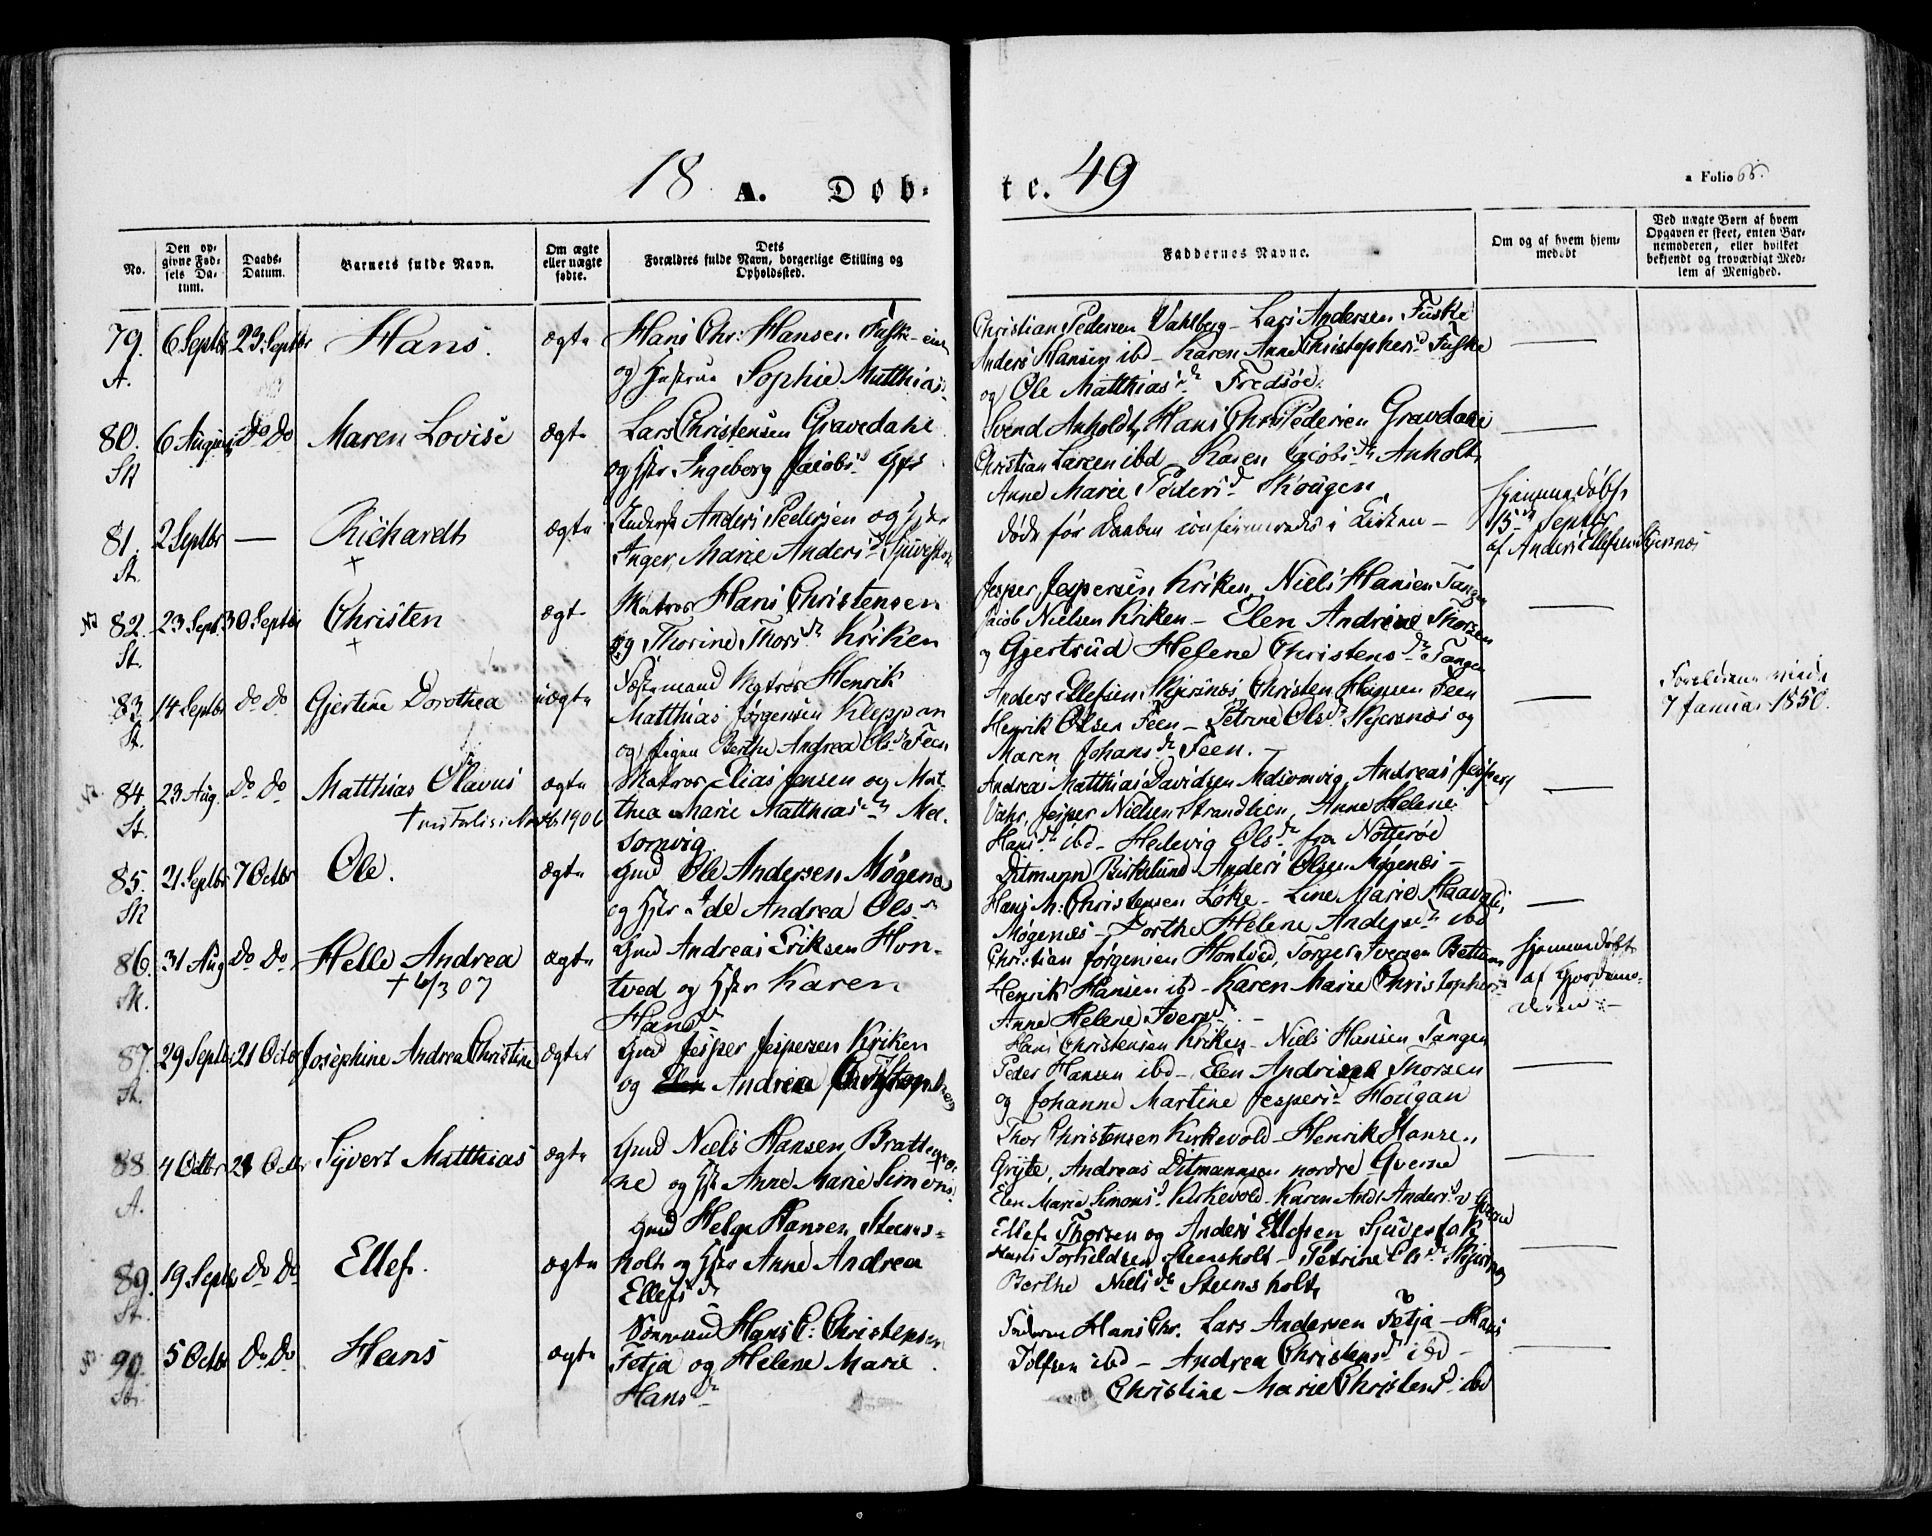 18 A. Døb-
te. 49
a Folio 66.
No.
Den op-
givne Fød-
sels Da-
tum.
Daabs-
Datum.
Barnets fulde Navn.
Om ægte
eller uægte
fødte.
Dets
Forældres fulde Navn, borgerlige Stilling og
Opholdssted.
Faddernes Navne.
Om og af hvem hjem-
medøbt
Ved uægte Børn af hvem
Opgaven er skeet, enten Bar-
nemoderen, eller hvilket
bekjendt og troværdigt Med-
lem af Menighed.
79. 6 Septbr 23 Septbr Hans. ægte Hans Chr: Hansen Fuske-
A. og Hustrue Sophie Matthias
Christian Pedersen Vahlberg - Lars Andersen Fuske
Anders Hansen ibd - Karen Anne Christophersd Fuske
og Ole Matthias Fredsøe.
80. 6 August Do Do Maren Lovise ægte Lars Christensen Gravedahl
Sk og Hstr Ingeborg Jacobsd
Svend Anholdt, Hans Chr Pedersen Gravdahl
Christian Larsen ibd Karen Jacobsdr Anholt,
Anne Marie Pedersd Skougen
81. 2 Septbr — Richardt ægte Anders Pedersen og Hstr
St. + Inger Marie Anders
døde før Daaben confirmeredes i Kirken -
Hjemmedøbt
15de Septbr
af Anders Ellefsen Skjersnæs
82. 23 Sept. 30 Septbr Christen ægt Matros Hans Christensen
St. + og Thorine Thorsdr Kriken
Jesper Jespersen Kriken, Niels Hansen Tangen
Jacob Nielsen Kriken - Elen Andrine Thorsen
og Gjertrud Helene Christensdr Tangen
83. 14 Septbr do do Gjertine Dorothea uægte Matros Henrik
St. Matthias Jørgensen Kleppan
og Pigen Berthe Andrea Olsdr Feen
Anders Ellefsen Skjersnæs, Christen Hansen Feen
Henrik Olsen Feen - Petrine Olsdr Skjersnæs og
Maren Johansdr Feen. -
7 Januar 1850.
84. 23 Aug. Do Do Matthias Olavus ægte Matros Elias Jensen og Mat
St. 1906 thea Marie Matthiasdr Mel
somvig
Andreas Matthias Davidsen Melsomvig, Andreas Jespers
Jesper Nielsen Strandlien, Anne Helene
Hansdr ibd - Hedevig Olsdr fra Nøtterøe
85. 21 Septbr 7 Octbr Ole. ægte Gmd Ole Andersen Møgenæs
Sk og Hstr Ide Andrea Ols
Ditmann Birkelund Anders Olsen Møgenæs -
Hans M: Christensen Løke - Line Marie
Møgenæs - Dorthe Helene Andersdr ibd
86. 31 Aug Do Do Helle Andrea ægte Gmd Andreas Eriksen Hon-
Sk. + 6/3 07 tved og Hstr Karen
Hansd
Christian Jørgensen Hontved, Torger Iversen
Henrik Hansen ibd - Karen Marie Christophers
Anne Helene Iversd.
Hjemmedøbt
af Gjordemo-
deren -
87. 29 Septbr 21 Octbr Josephine Andrea Christine ægte Gmd Jesper Jespersen Kriken
St. og Andrea
Hans Christensen Kriken - Niels Hansen Tangen
Peder Hansen ibd - Elen Andrine Thorsen
og Johanne Martine Jespersdr Hougan
88. 4 Octbr 21 Octbr Syvert Matthias ægte Gmd Niels Hansen
A. ne og Hstr Anne Marie Simons
Thor Christensen Kirkevold - Henrik Hanse
Gryte, Andreas Ditmannsen nordre Qverne
Elen Marie Simonsd Kirkevold - Karen And: Anders Qverne
89. 19 Septbr Do Do Ellef. ægte Gmd Helge Hansen Steens-
St. holt og Hstr Anne Andrea
Ellefsdr
Ellef Thorsen og Anders Ellefsen
Hans Torkildsen Steensholt - Petrine Elsdr
Berthe Nielsdr Steensholt
90. 5 Octbr Do Do Hans ægte Hans C: Christensen
St. Fetja og Helene Marie
Hansdr
Hans Chr. Lars Andersen Fetja - Hans
Tolfsen ibd - Andrea Christensdr ibd -
Christine Marie Christensd ibd